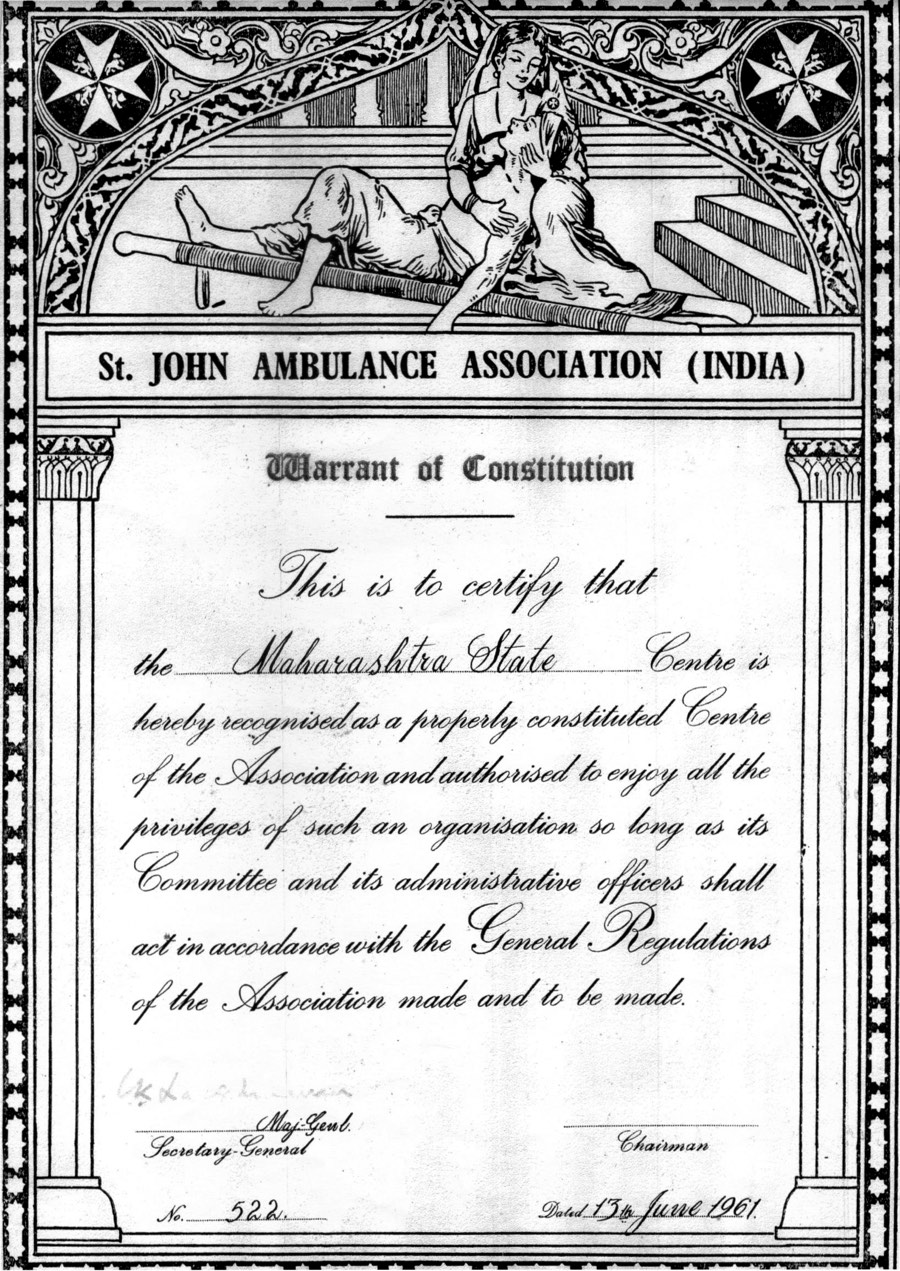 St. JOHN AMBULANCE ASSOCIATION (INDIA)
Warrant of Constitution
This is to certify that
the Maharashtra State Centre is
hereby recognised as a properly constituted Centre
of the Association and authorised to enjoy all the
privileges of such an organisation so long as its
Committee and its administrative officers shall
act in accordance with the General Regulations
of the Association made and to be made.
Maj-Genl.
Secretary-General
Chairman
No. 522.
Dated 13th June 1961.